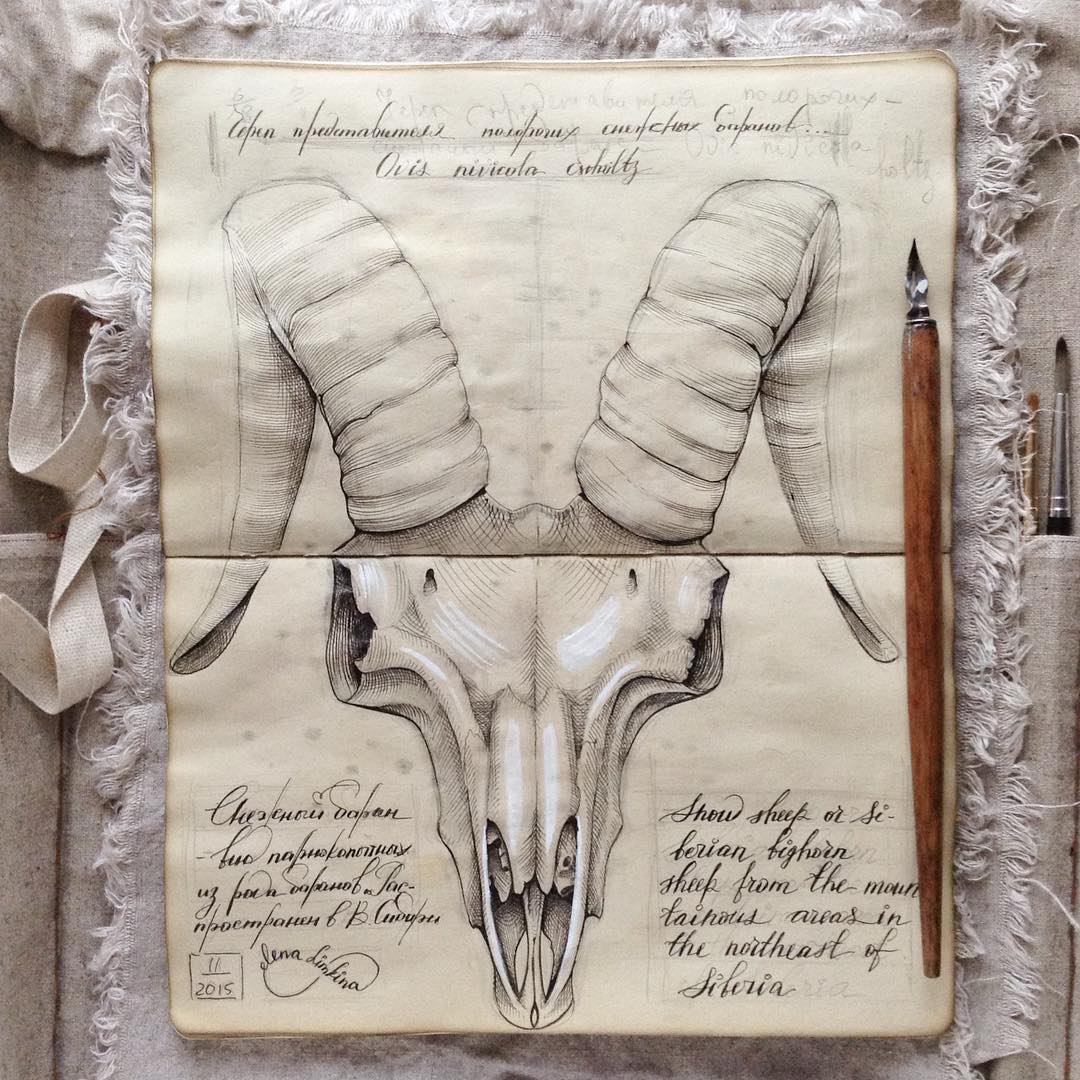 Череп представителя полорогих снежных баранов...
Ovis nivicola
Снежный баран
- вид парнокопытных
из рода баранов. Рас-
пространен в В. Сибири
11
2015
Lena Limkina
Snow sheep or Si-
berian bighorn
sheep from the moun
tainous areas in
the northeast of
Siberia